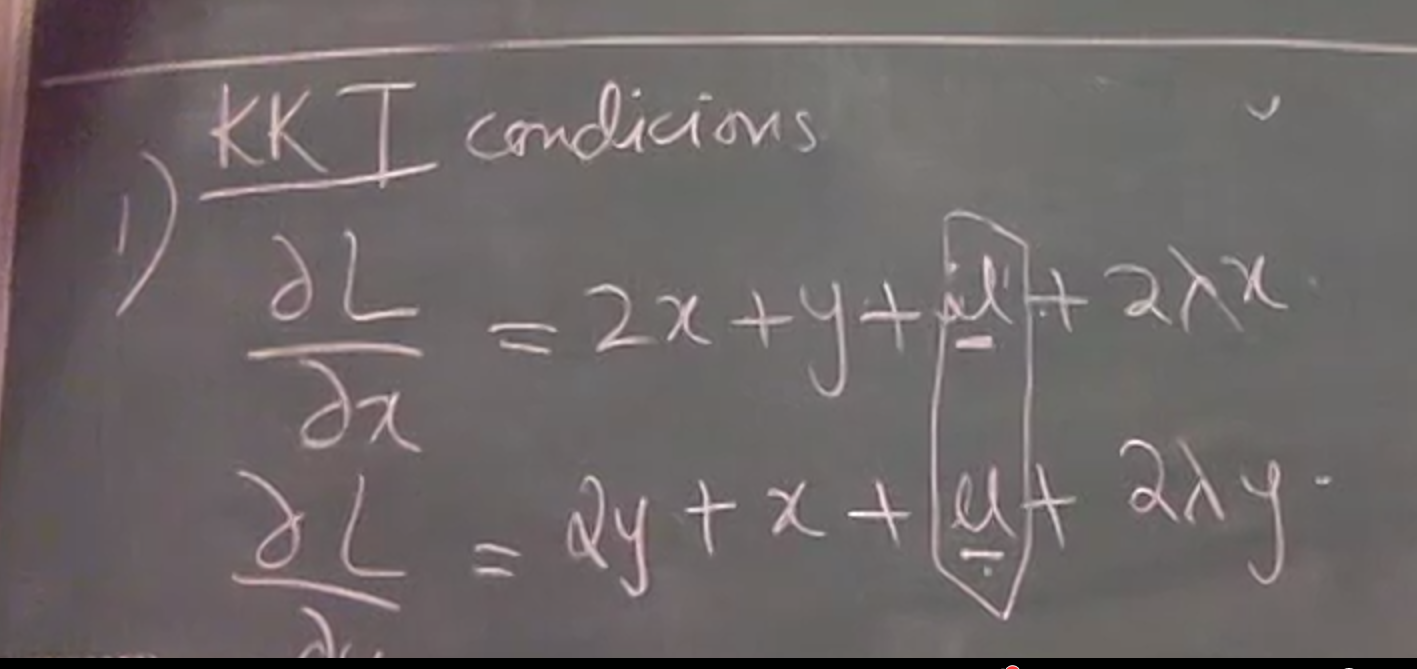 KKT condicions
1) ∂L/∂x = 2x + y + μ + 2λx.
∂L/∂y = 2y + x + μ + 2λy.